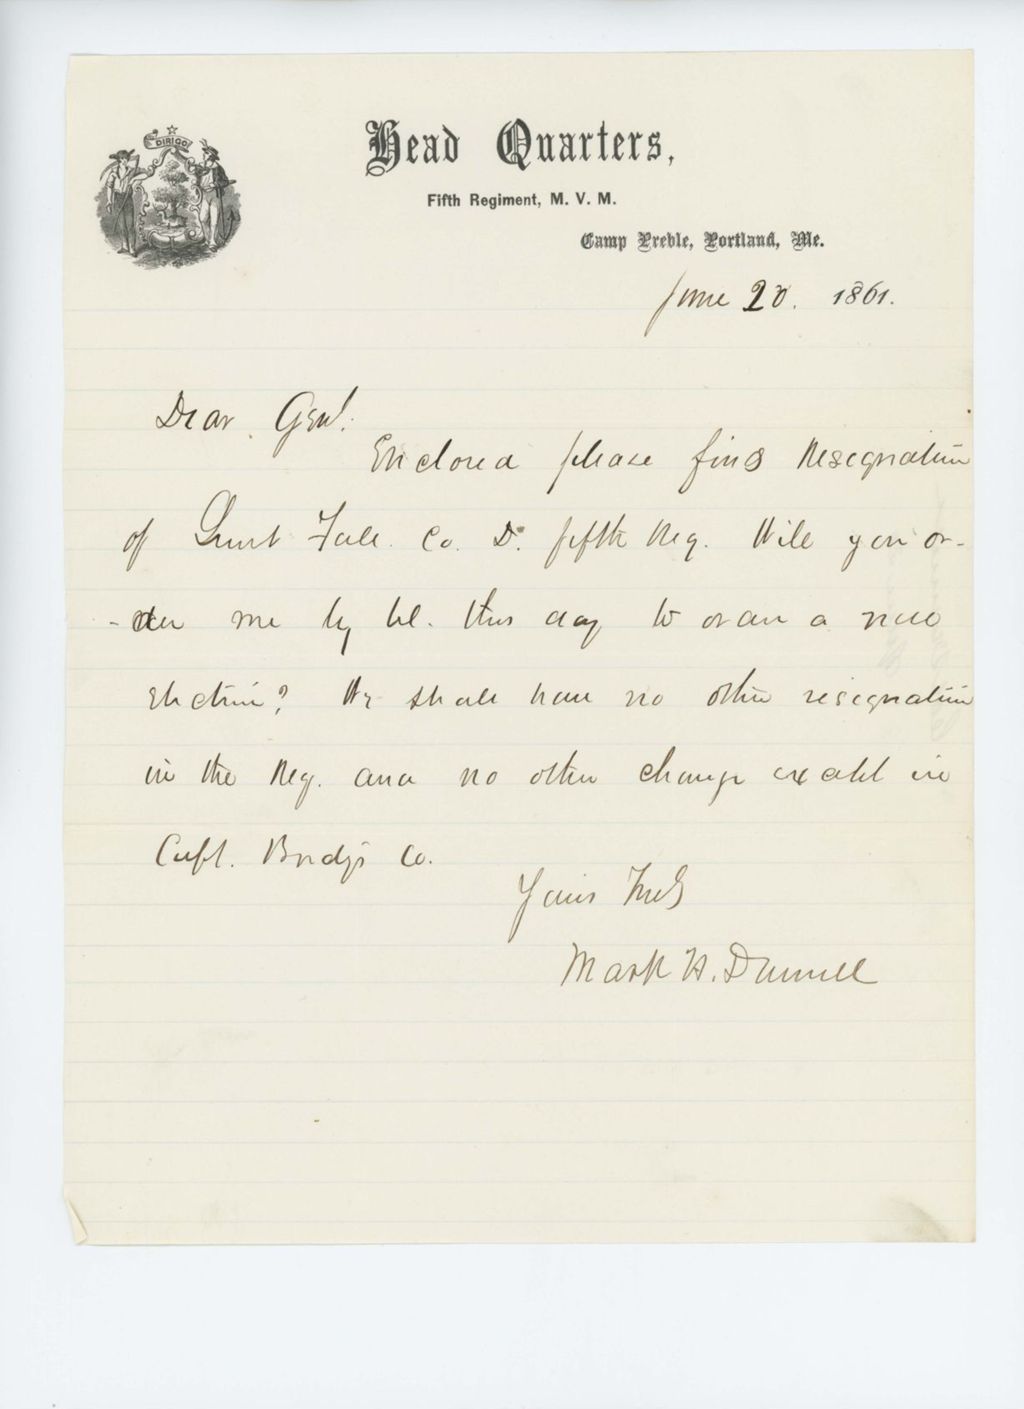 DIRIGO
Head Quarters,
Fifth Regiment, M. V. M.
Camp Preble, Portland, Me.
June 20. 1861.
Dear Genl.
Enclosed please find Resignation
of Lieut Fall. Co. D. fifth Reg. Will you or-
-der me by tel. this day to order a new
election? We shall have no other resignation
in the Reg. and no other change except in
Capt. Co.
Yours Truly
Mark H. Dunnell